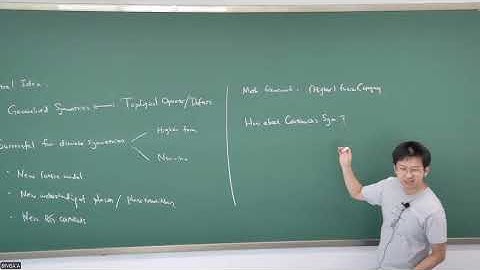 ral Idea.
Generalized Symmetries ⟷ Topological Operator/Defects
Successful for discrete symmetries
Higher form
Non-inv
• New lattice model
• New understanding of phases / phase transition
• New RG constraints
Math framework : (Higher) fusion Category
How about Continuous Sym ?